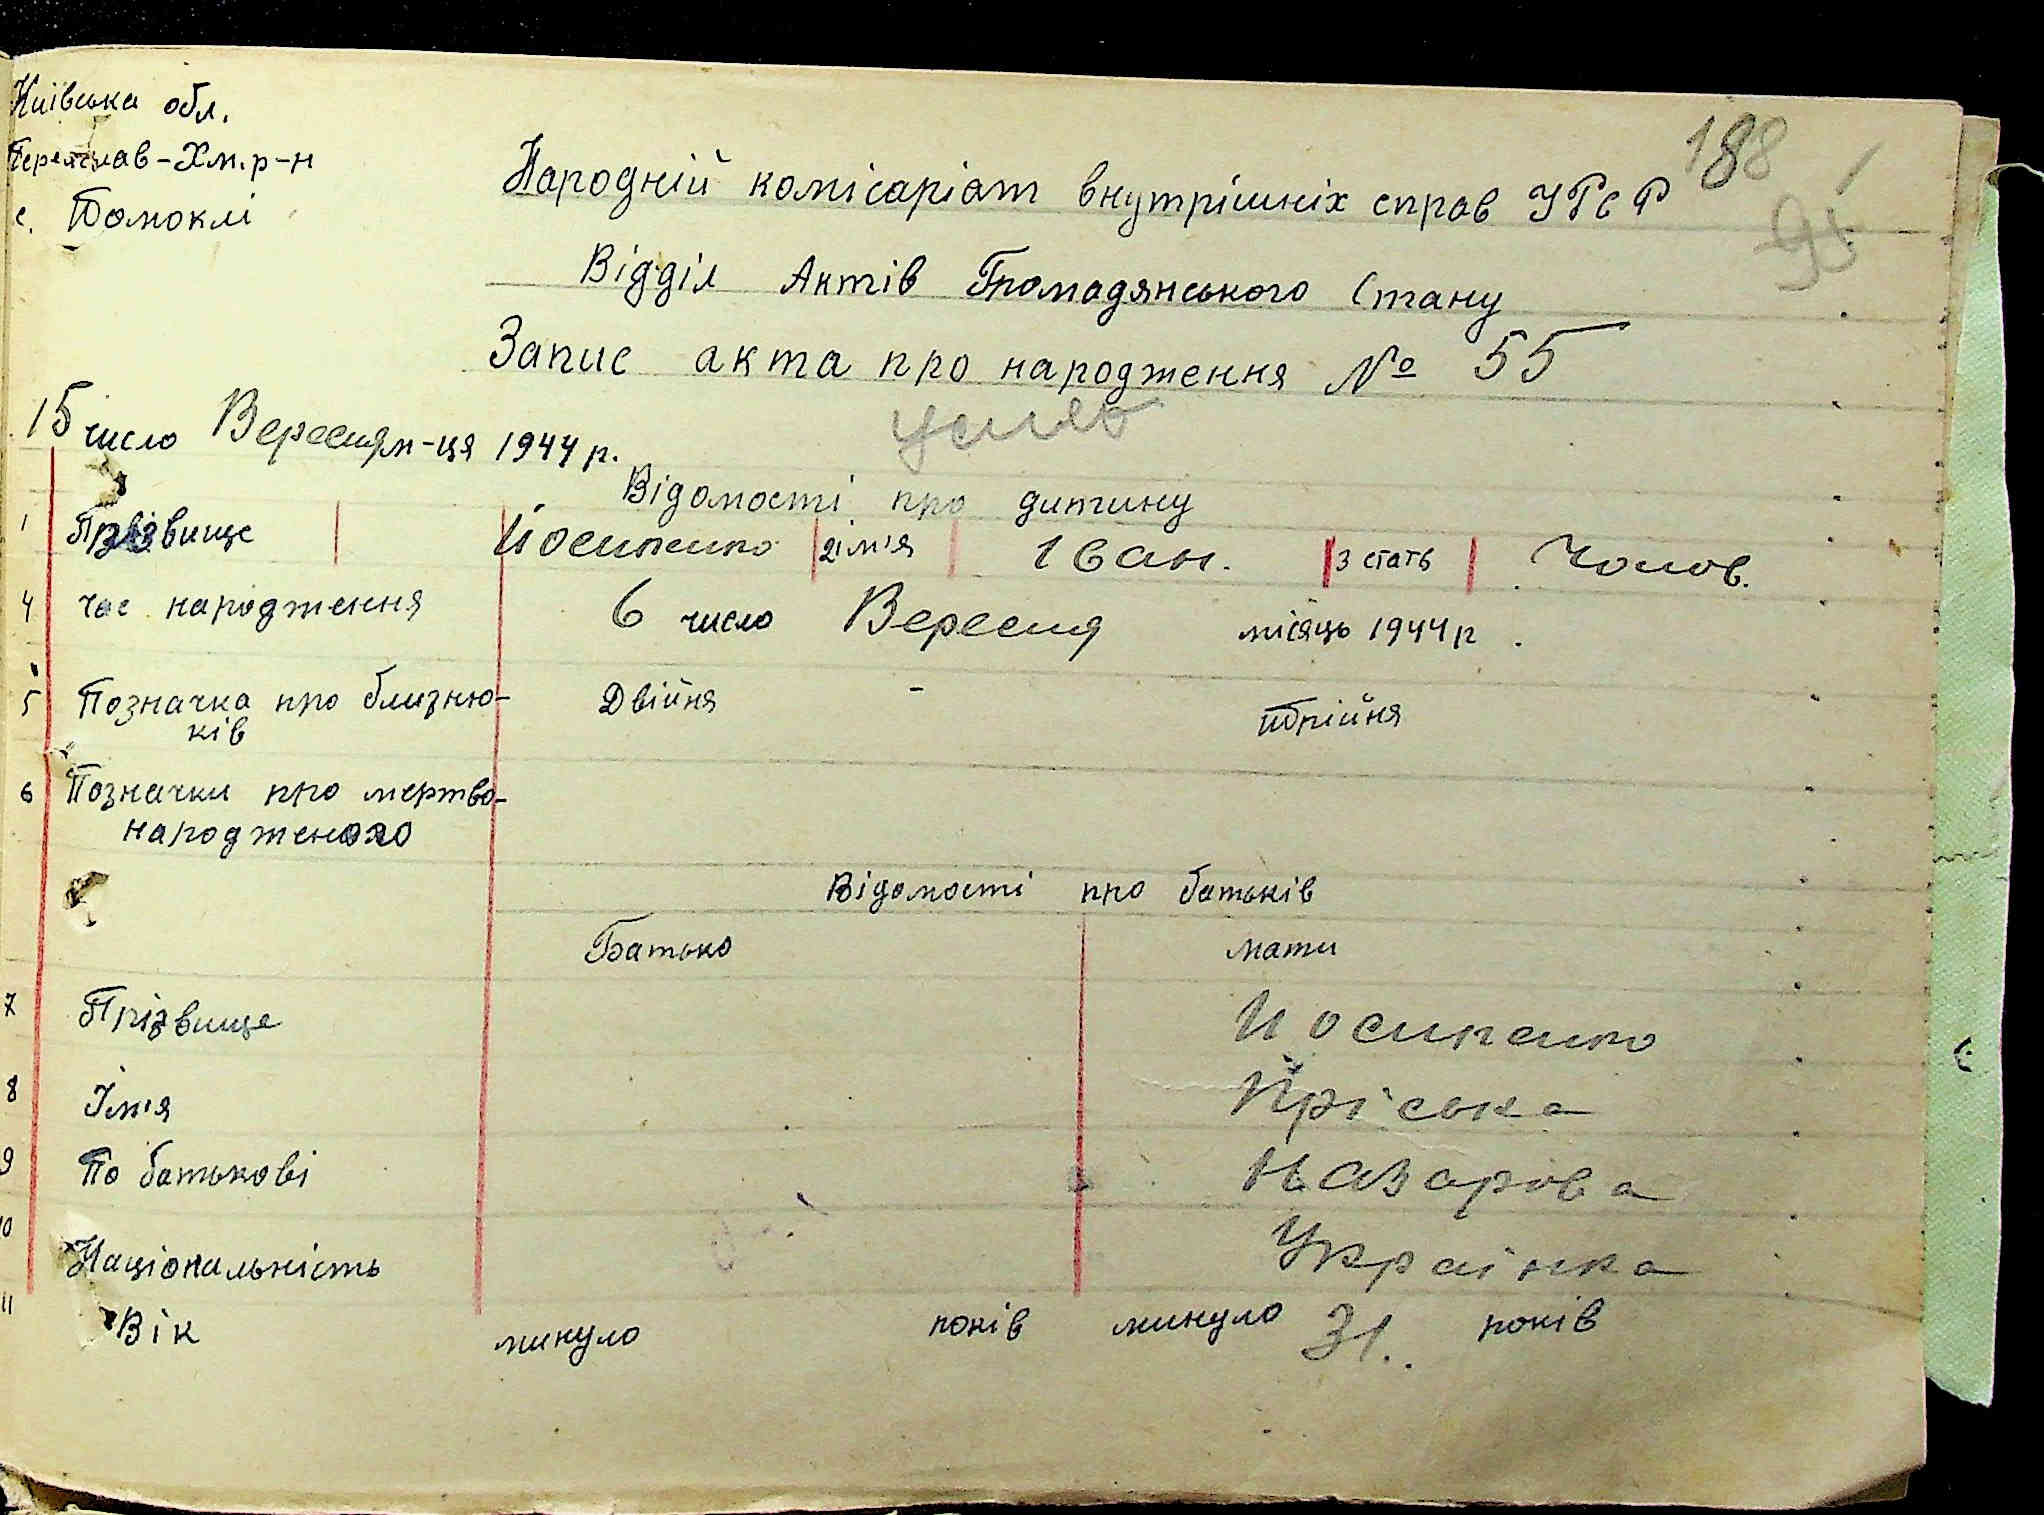 Київська обл.
Переяслав-Хм. р-н
с. Помоклі
188
95
Народній комісаріат внутрішніх справ УРСР
Відділ Актів Громадянського Стану
Запис акта про народження № 55
15 число Вересня м-ця 1944 р.
Відомості про дитину
1 Прізвище Йосипенко 2 ім'я Іван. 3 стать Чолов.
4 Час народження 6 число Вересня місяць 1944 р.
5 Позначка про близню- Двійня - Трійня
ків
6 Позначки про мертво-
народженого
Відомості про батьків
Батько мати
7 Прізвище Йосипенко
8 Ім'я Пріська
9 По батькові Назарова
10 Національність Українка
11 Вік минуло років минуло 31. років